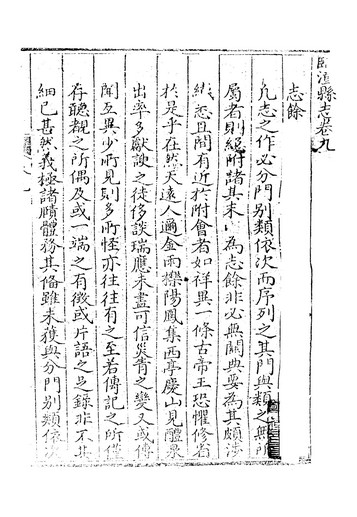 臨潼縣志卷九
志餘
凡志之作必分門別類依次而序列之其門與類之無所
屬者則總附諸其末以為志餘非必無關典要為其頗涉
纖悉且間有近於附會者如祥異一條古帝王恐懼修省
於是乎在然天遠人邇金雨櫟陽鳳集西亭慶山見醴泉
出率多獻諛之徒侈談瑞應未盡可信災眚之變又或傳
聞互異少所見則多所怪亦往往有之至若傳記之所僅
存聽覩之所偶及或一端之有徵或片語之足錄非不其
細已甚然義極諸賾體務其備雖未獲與分門別類依次